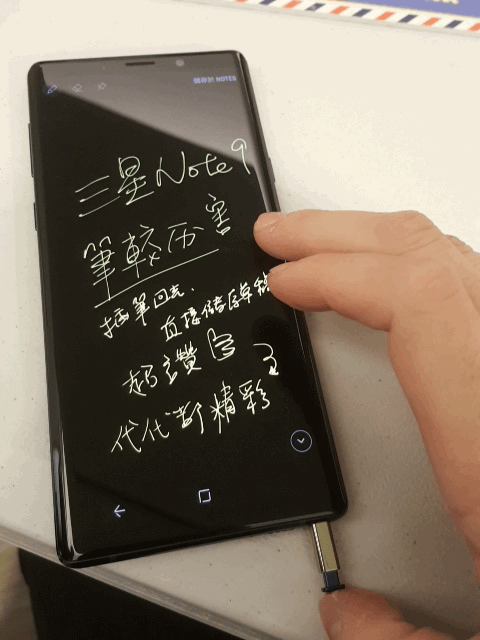 儲存於 NOTES
三星Note9
筆較历害
插筆回去.
直接儲存草稿
超讚
代代都精彩